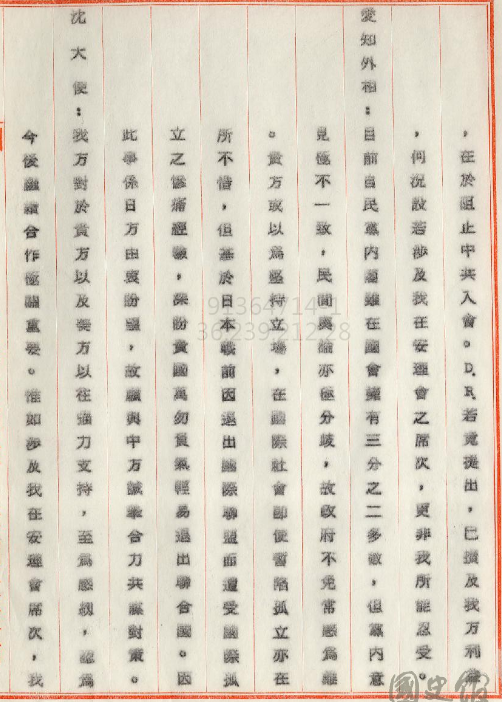 ，在於阻止中共入會。D.R.若竟提出，已損及我方利益
，何況設若涉及我在安理會之席次，更非我所能忍受。
愛知外相：目前自民黨內閣雖在國會擁有三分之二多數，但黨內意
見極不一致，民間輿論亦極分歧，故政府不免常感為難
。貴方或以為堅持立場，在國際社會即使暫陷孤立亦在
所不惜，但基於日本戰前因退出國際聯盟而遭受國際孤
立之慘痛經驗，深盼貴國萬勿負氣輕易退出聯合國。因
此事係日方由衷盼望，故願與中方誠摯合力共謀對策。
沈大使：我方對於貴方以及美方以往強力支持，至為感紉，認為
今後繼續合作極關重要。惟如涉及我在安理會席次，我
國史館